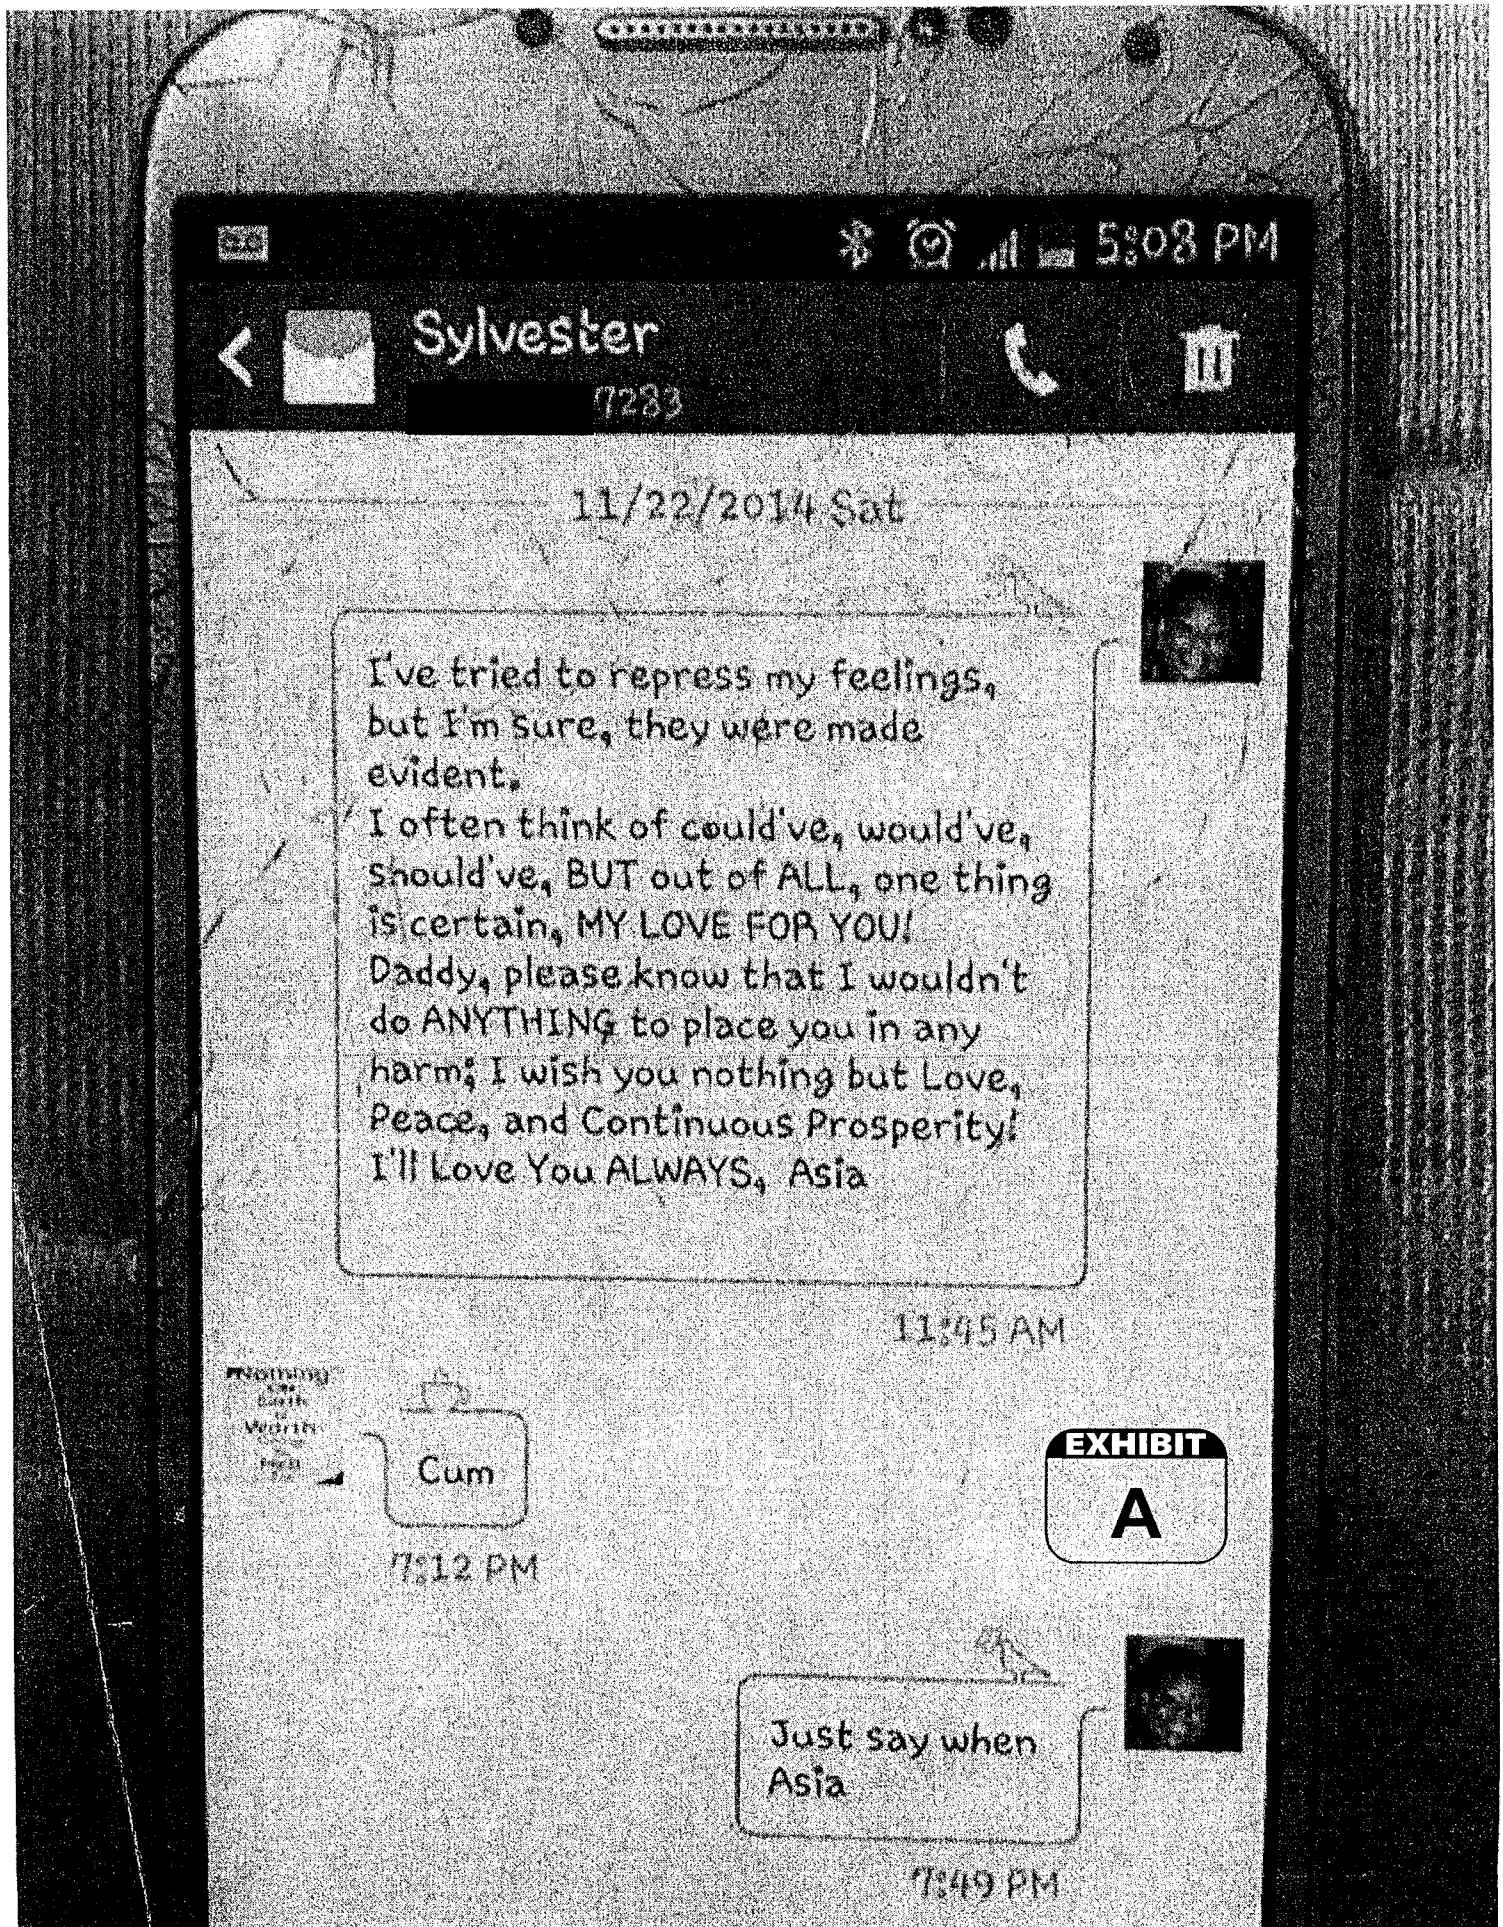 5:08 PM
Sylvester
7283
11/22/2014 Sat
I've tried to repress my feelings,
but I'm sure, they were made
evident.
I often think of could've, would've,
should've, BUT out of ALL, one thing
is certain, MY LOVE FOR YOU!
Daddy, please know that I wouldn't
do ANYTHING to place you in any
harm; I wish you nothing but Love,
Peace, and Continuous Prosperity!
I'll Love You ALWAYS, Asia
11:45 AM
Nothing
Worth
Cum
7:12 PM
EXHIBIT
A
Just say when
Asia
7:49 PM